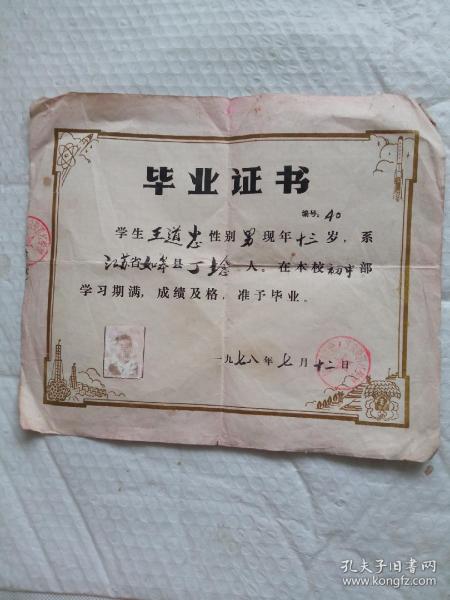 毕业证书
编号：40
学生王道忠性别男现年十三岁，系
江苏省如皋县丁埝人。在本校初中部
学习期满，成绩及格，准予毕业。
一九七八年七月十二日
孔夫子旧书网
www.kongfz.com